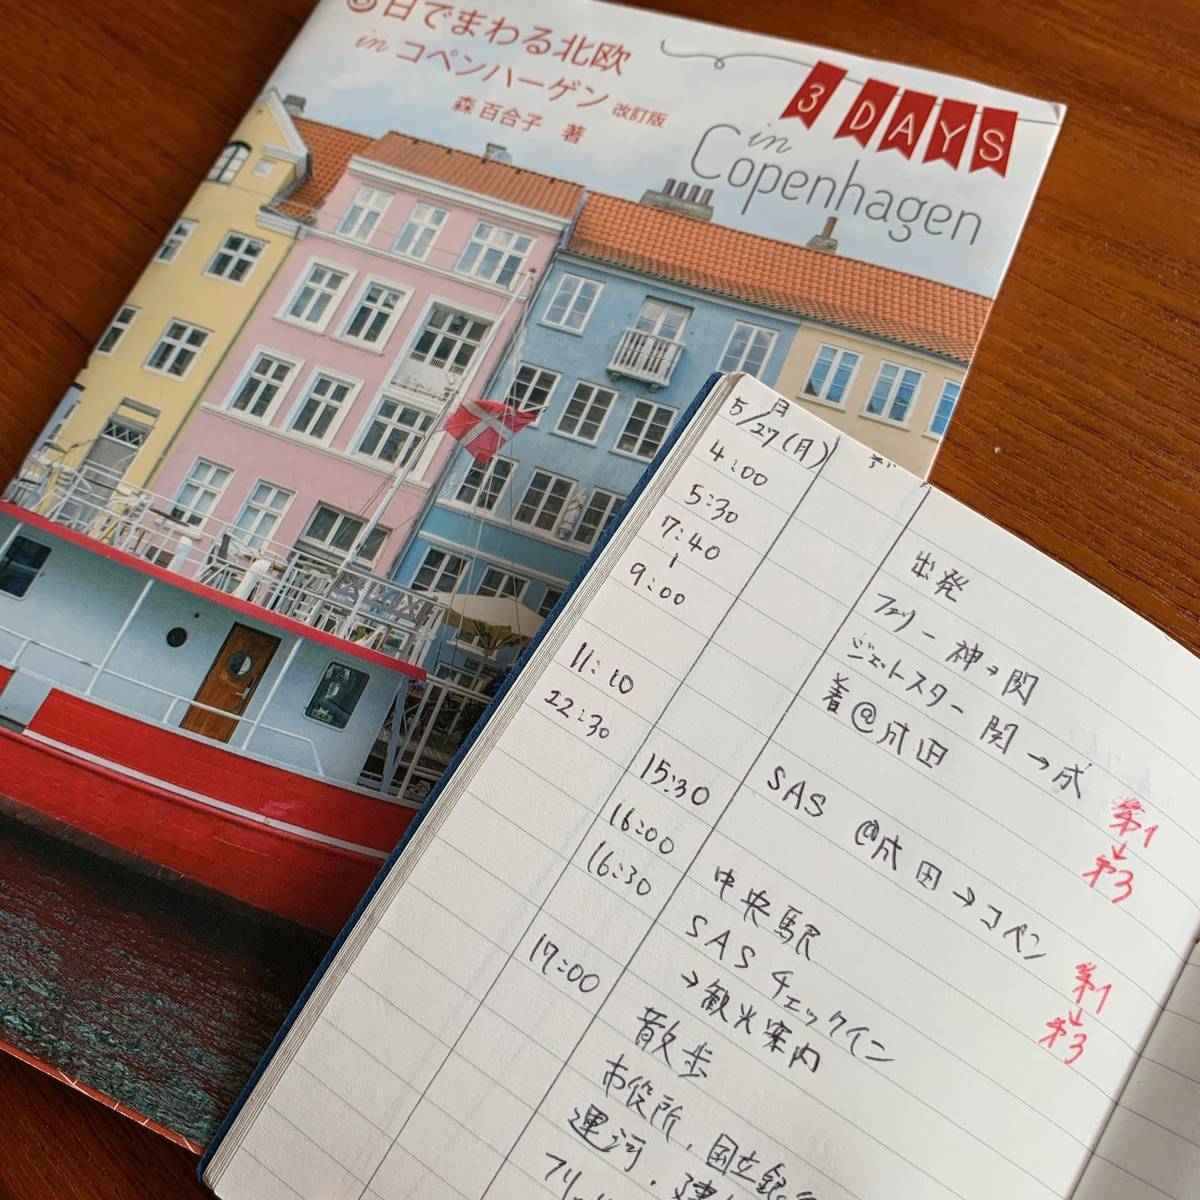 3日でまわる北欧
in コペンハーゲン 改訂版
森 百合子 著
3 DAYS
in
Copenhagen
月
5/27(月)
デ
4:00 出発
5:30 フェリー 神→関
7:40 ジェットスター 関→成
9:00 着@成田
第1
↓
第3
11:10 SAS @成田→コペン
22:30
第1
↓
第3
15:30 中央駅
16:00 SAS チェックイン
16:30 →観光案内
17:00 散歩
市役所,国立銀
運河・建